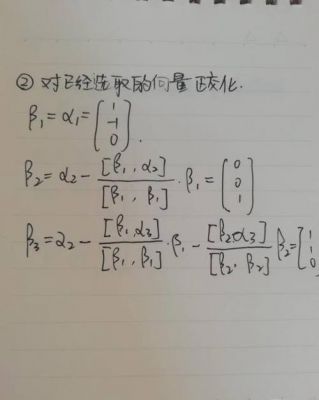 ② 对已经选取的向量正交化.
β₁ = α₁ = [1 -1 0] .
β₂ = α₂ - [β₁, α₂] / [β₁, β₁] · β₁ = [0 0 1]
β₃ = α₂ - [β₁, α₃] / [β₁, β₁] · β₁ - [β₂ α₃] / [β₂, β₂] β₂ = [1 1 0